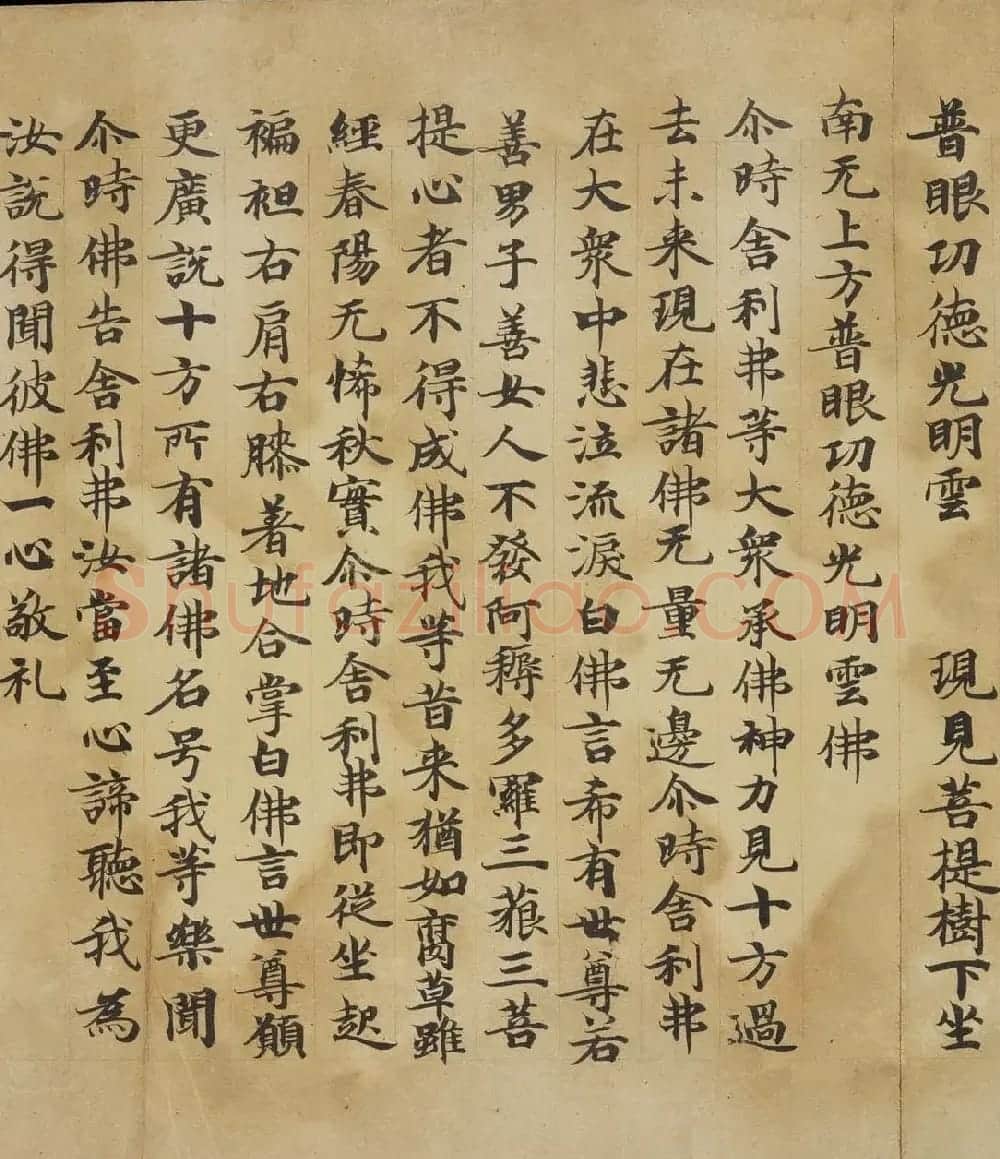 普眼功德光明雲 現見菩提樹下坐
南无上方普眼功德光明雲佛
尒時舍利弗等大衆承佛神力見十方過
去未来現在諸佛无量无邊尒時舍利弗
在大衆中悲泣流淚白佛言希有世尊若
善男子善女人不發阿耨多羅三藐三菩
提心者不得成佛我等昔来猶如腐草雖
經春陽无悕秋實尒時舍利弗即從坐起
褊袒右肩右膝著地合掌白佛言世尊願
更廣説十方所有諸佛名号我等樂聞
尒時佛告舍利弗汝當至心諦聽我為
汝説得聞彼佛一心敬礼
Shufaziliao.COM